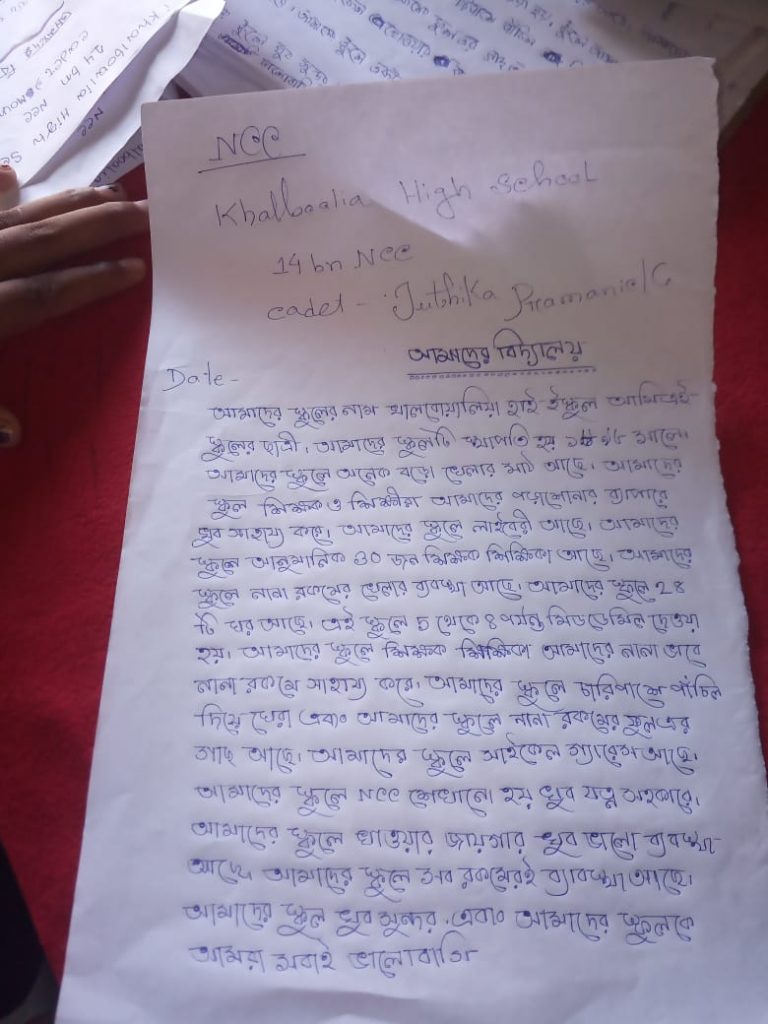 NCC
Khalboalia High School
14 bn NCC
cadet - Juthika Pramanick
আমাদের বিদ্যালয়
Date -
আমাদের স্কুলের নাম খালবোয়ালিয়া হাই ইস্কুল আমি এই
স্কুলের ছাত্রী। আমাদের স্কুলটি স্থাপতি হয় সালে।
আমাদের স্কুলে অনেক বড়ো খেলার মাঠ আছে। আমাদের
স্কুল শিক্ষক ও শিক্ষীরা আমাদের পড়াশোনার ব্যাপারে
খুব সাহায্য করে। আমাদের স্কুলে লাইবেরী আছে। আমাদের
স্কুলে আনুমানিক 30 জন শিক্ষক শিক্ষিকা আছে। আমাদের
স্কুলে নানা রকমের খেলার ব্যবস্থা আছে। আমাদের স্কুলে 28
টি ঘর আছে। এই স্কুলে 5 থেকে 8 পর্যন্ত মিডডেমিল দেওয়া
হয়। আমাদের স্কুলে শিক্ষক শিক্ষিকা আমাদের নানা ভাবে
নানা রকমে সাহায্য করে। আমাদের স্কুলে চারিপাশে পাঁচিল
দিয়ে ঘেরা এবং আমাদের স্কুলে নানা রকমের ফুল এর
গাছ আছে। আমাদের স্কুলে সাইকেল গ্যারেজ আছে।
আমাদের স্কুলে NCC শেখানো হয় খুব যত্ন সহকারে।
আমাদের স্কুলে খাওয়ার জায়গার খুব ভালো ব্যবস্থা
আছে আমাদের স্কুলে সব রকমেরই ব্যাবস্থা আছে।
আমাদের স্কুল খুব সুন্দর। এবং আমাদের স্কুলকে
আমরা সবাই ভালোবাসি